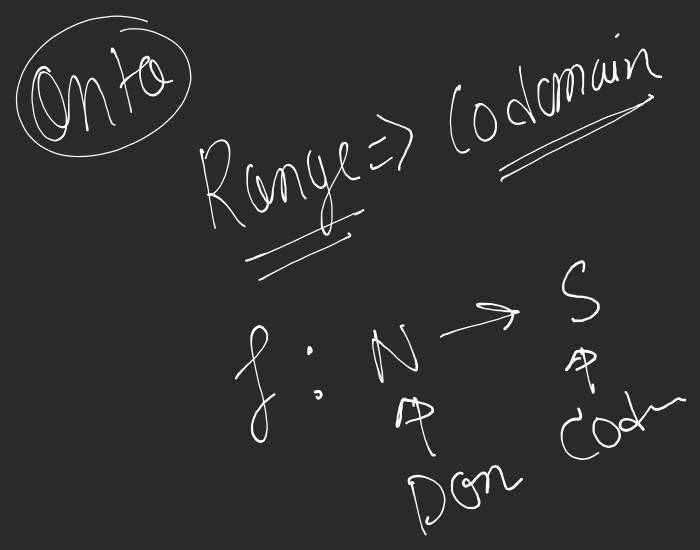 Onto
Range => Codomain
f : N → S
Dom Codm